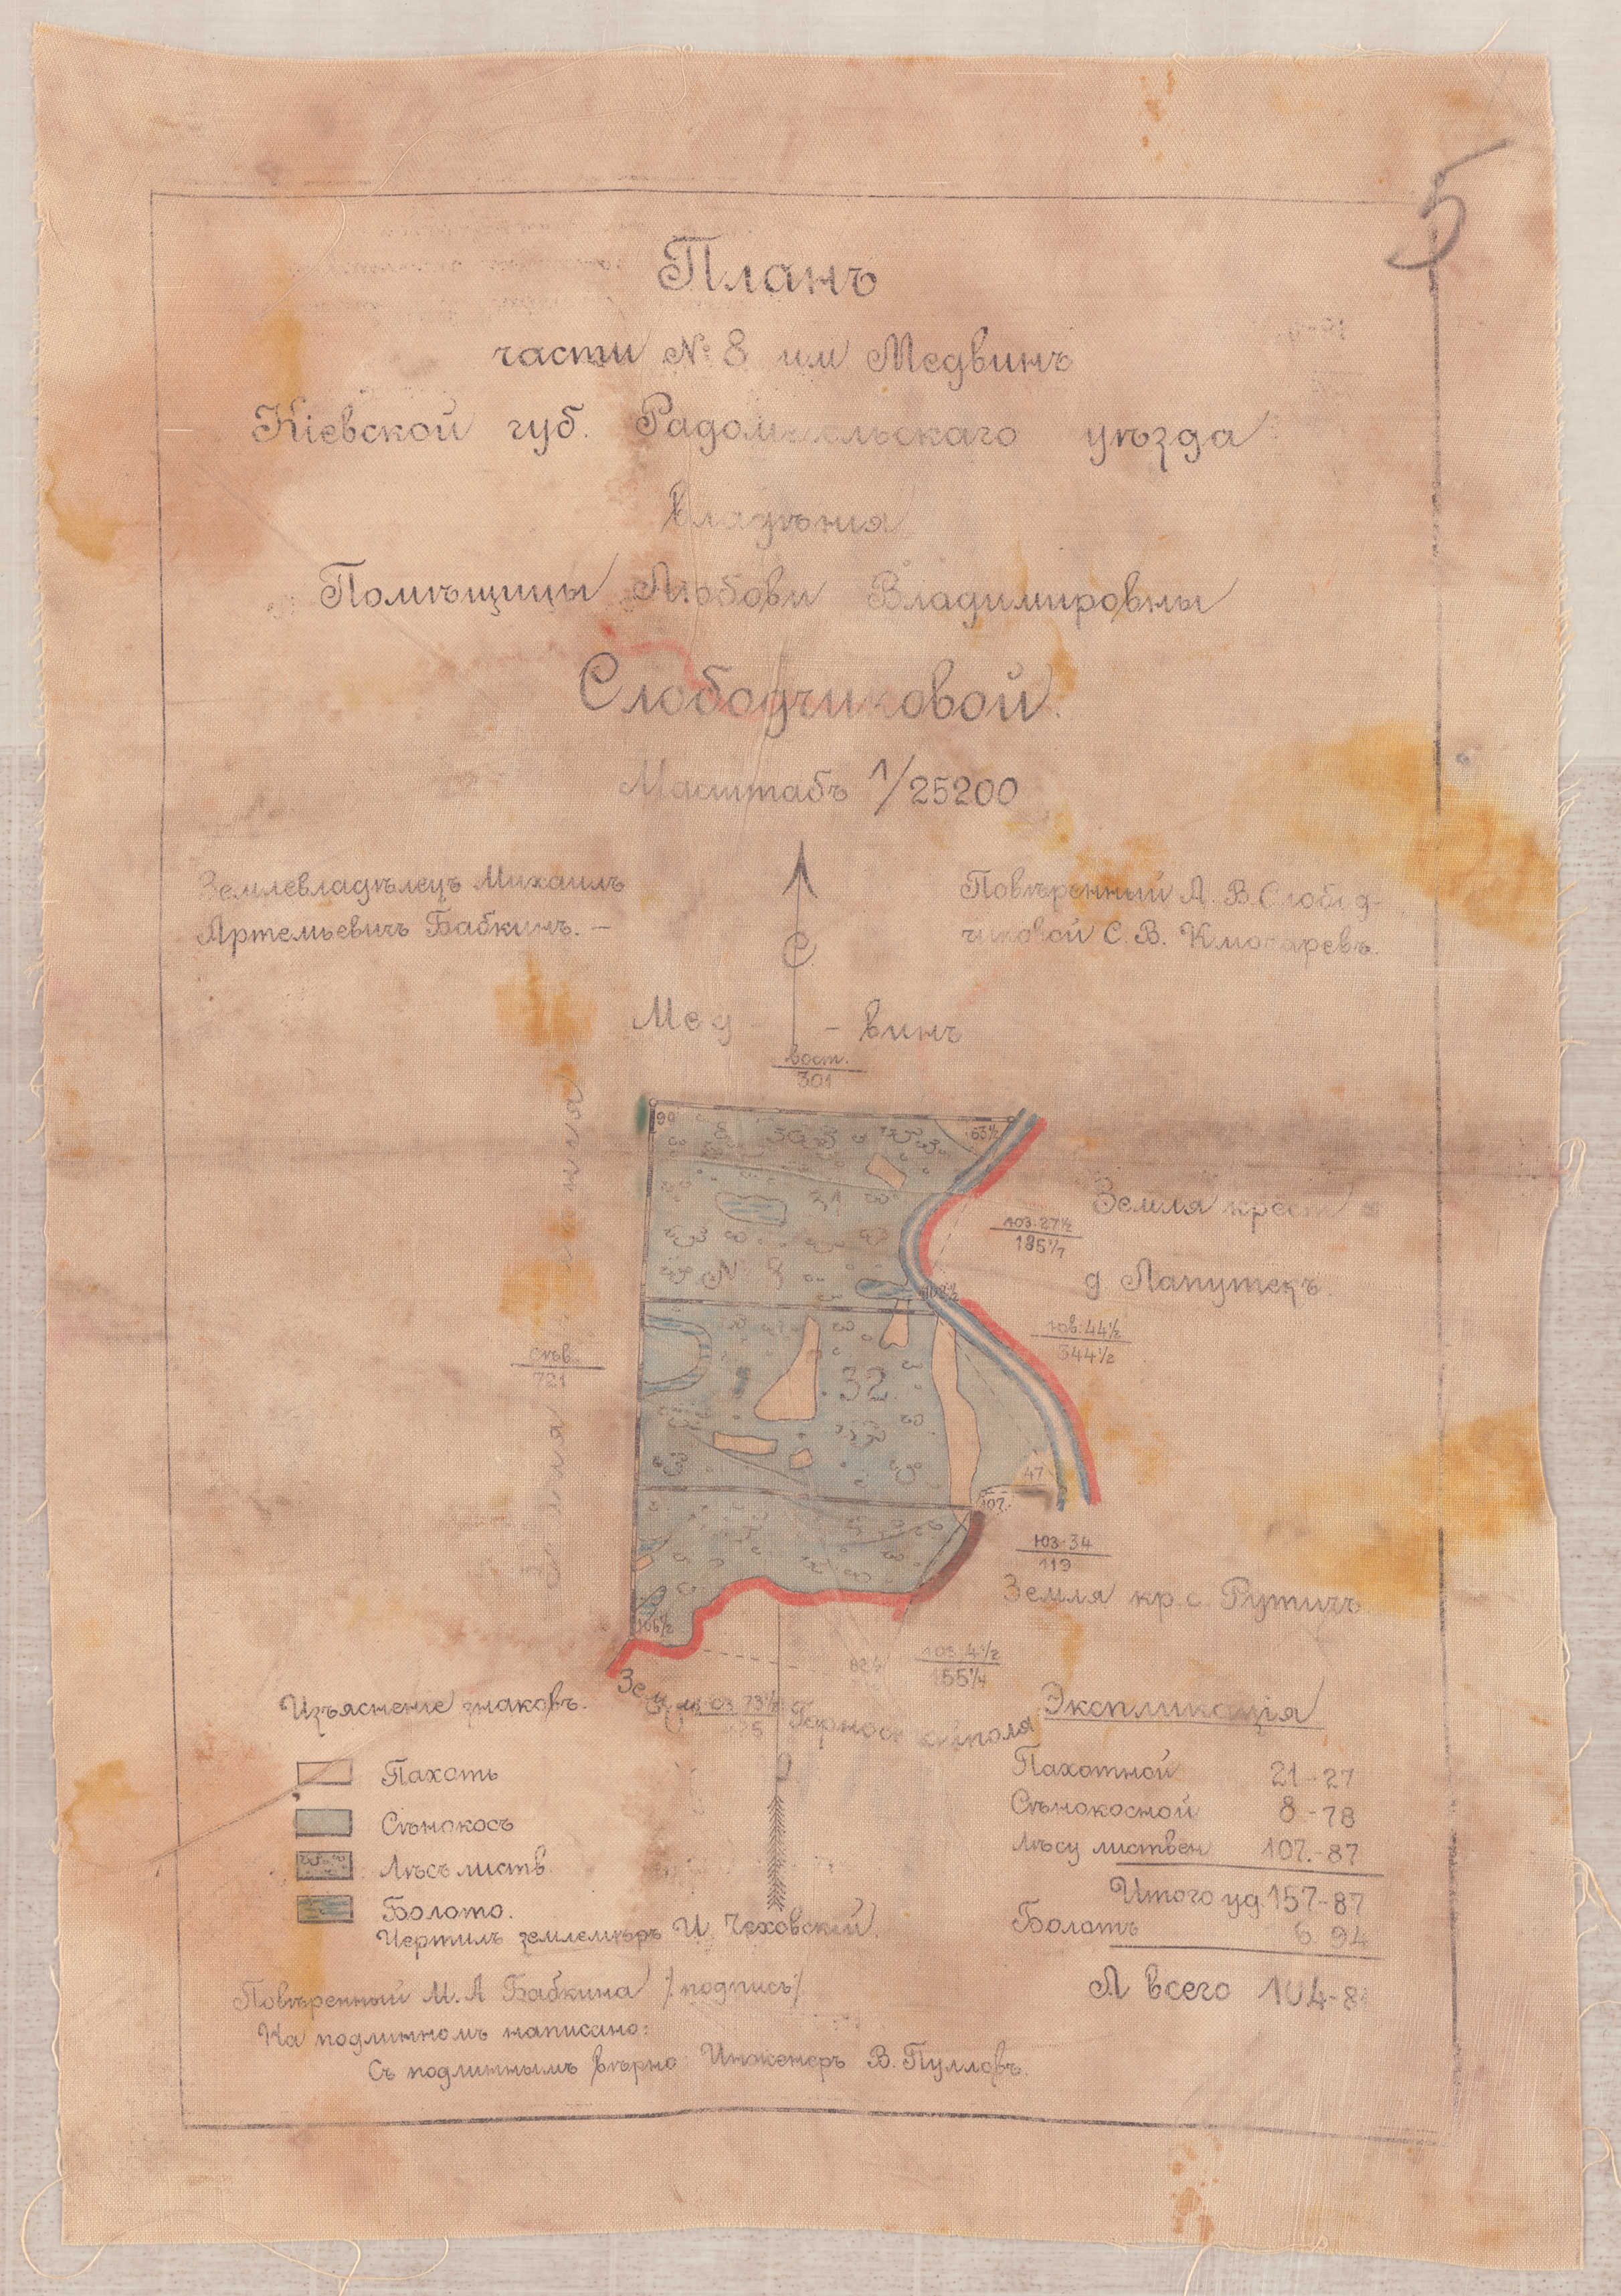 5
Планъ
части № 8 им Медвинъ
Кіевской губ. Радомысльскаго уѣзда
Владѣнія
Помѣщицы Любови Владимировны
Слободчиковой.
Масштабъ 1/25200
Землевладѣлецъ Михаилъ
Артемьевичъ Бабкинъ. —
Повѣренный Л. В. Слобод-
чиковой С. В.
С
Мед - винъ
вост.
301
99
63½
31
ЮЗ-27½
185½
Земля крест
№ 8
д Лапутекъ
102½
юв:44½
344½
сѣв.
721
32.
Земля
47
107.
ЮЗ-34
119
Земля кр. с. Рутичъ
106½
82½
ЮЗ. 4½
155¼
Земля
ЮЗ 73½
75
Горностайполя
Изъясненіе знаковъ.
Пахоть
Сѣнокосъ
Лѣсъ листв.
Болото.
Ю
Экспликація
Пахотной 21-27
Сѣнокосной 8-78
Лѣсу листвен 107.-87
Итого уд. 157-87
Болотъ 6. 94
А всего 104-8
Чертилъ землемѣръ И. Чеховскій.
Повѣренный М. А Бабкина /подпись/
На подлинномъ написано:
Съ подлиннымъ вѣрно: Инженеръ В. Пулловъ.